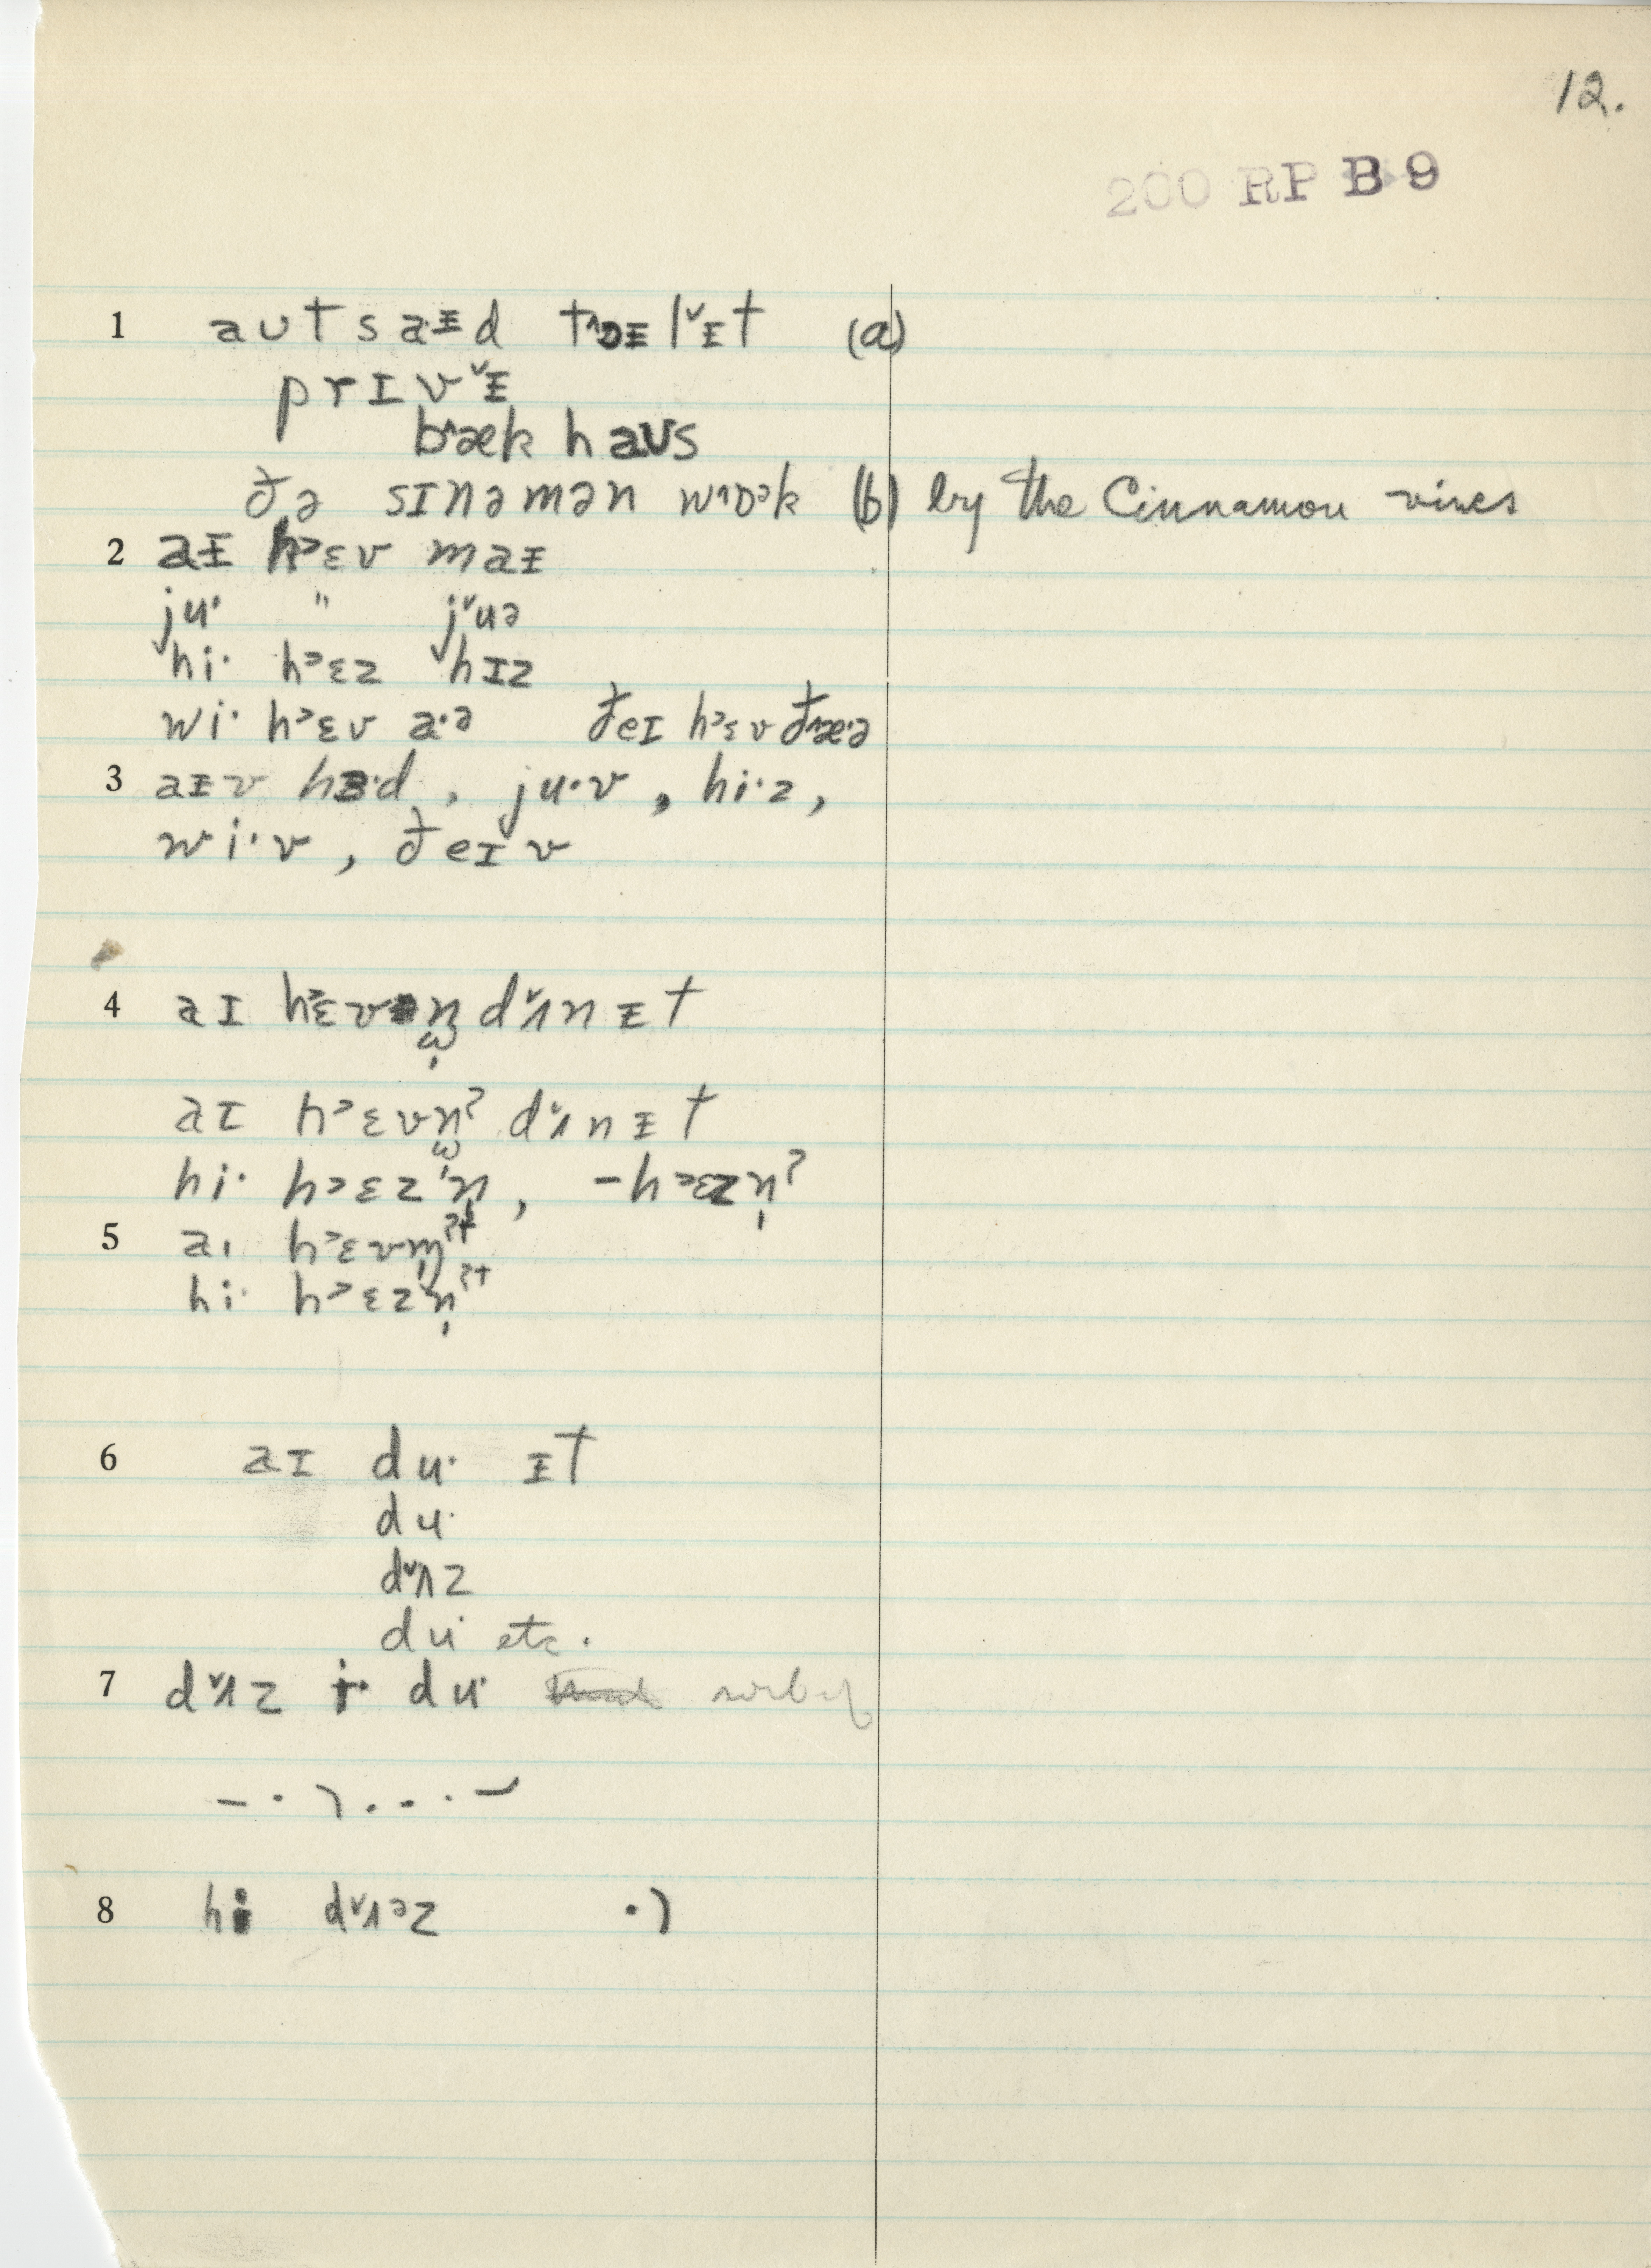 12.
200 RP B 9
1 aʊtsaɪ̵d tɒɪ̵lɪ̵t (a)
prɪvɪ̵
bæk haʊs
ðə sɪnəmən wɒək (b) by the Cinnamon vines
2 aɪ̵ hɛv maɪ̵
ju· " juə
hi· hɛz hɪz
wi· hɛv a·ə ðeɪ hɛv ðæ·ə
3 aɪ̵v hɜ·d, ju·v, hi·z,
wi·v, ðeɪv
4 aɪ hɛvn̩ dʌnɪ̵t
aɪ hɛvn̩ʔ dʌnɪ̵t
hi· hɛzn̩, -hɛzn̩ʔ
5 aɪ hɛvm̩ʔt
hi· hɛzn̩ʔt
6 aɪ du· ɪ̵t
du·
dʌz
du· etc.
7 dʌz i· du·
8 hi dʌəz